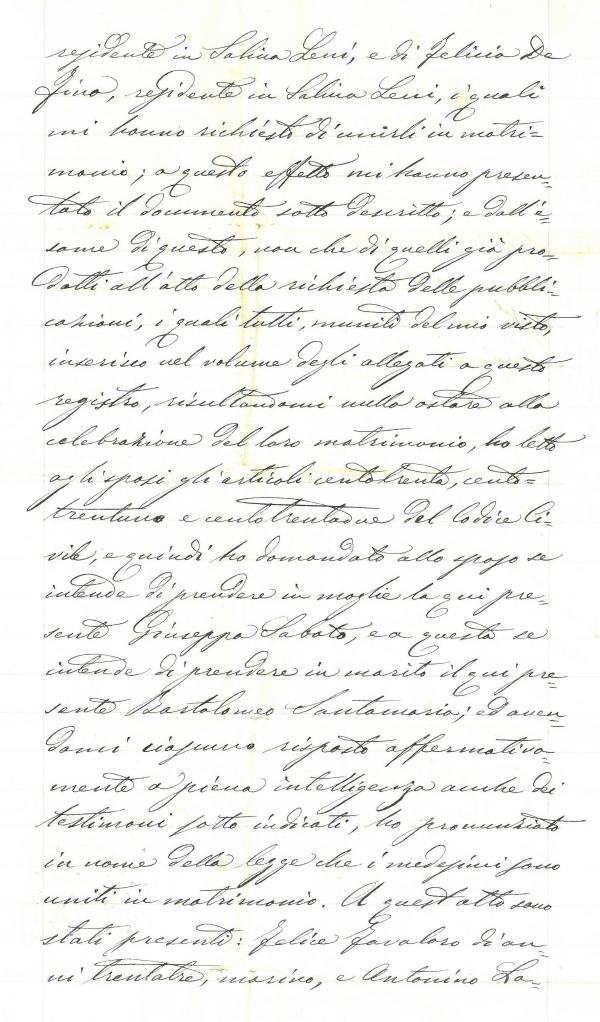 residente in Salina Leni, e di Felicia De
Fino, residente in Salina Leni, i quali
mi hanno richiesto di unirli in matri=
monio; a questo effetto mi hanno presen=
tato il documento sotto descritto; e dall'e=
same di questo, non che di quelli già pro=
dotti all'atto della richiesta delle pubbli=
cazioni, i quali tutti, muniti del mio visto,
inserisco nel volume degli allegati a questo
registro, risultandomi nulla ostare alla
celebrazione del loro matrimonio, ho letto
agli sposi gli articoli centotrenta, cento=
trentuno e centotrentadue del Codice Ci=
vile, e quindi ho domandato allo sposo se
intende di prendere in moglie la qui pre=
sente Giuseppa Sabato, e a questa se
intende di prendere in marito il qui pre=
sente Bartolomeo Santamaria; ed aven=
domi ciascuno risposto affermativa=
mente a piena intelligenza anche dei
testimoni sotto indicati, ho pronunziato
in nome della legge che i medesimi sono
uniti in matrimonio. A quest'atto sono
stati presenti: Felice Favaloro di an=
ni trentatre, marino, e Antonino La=